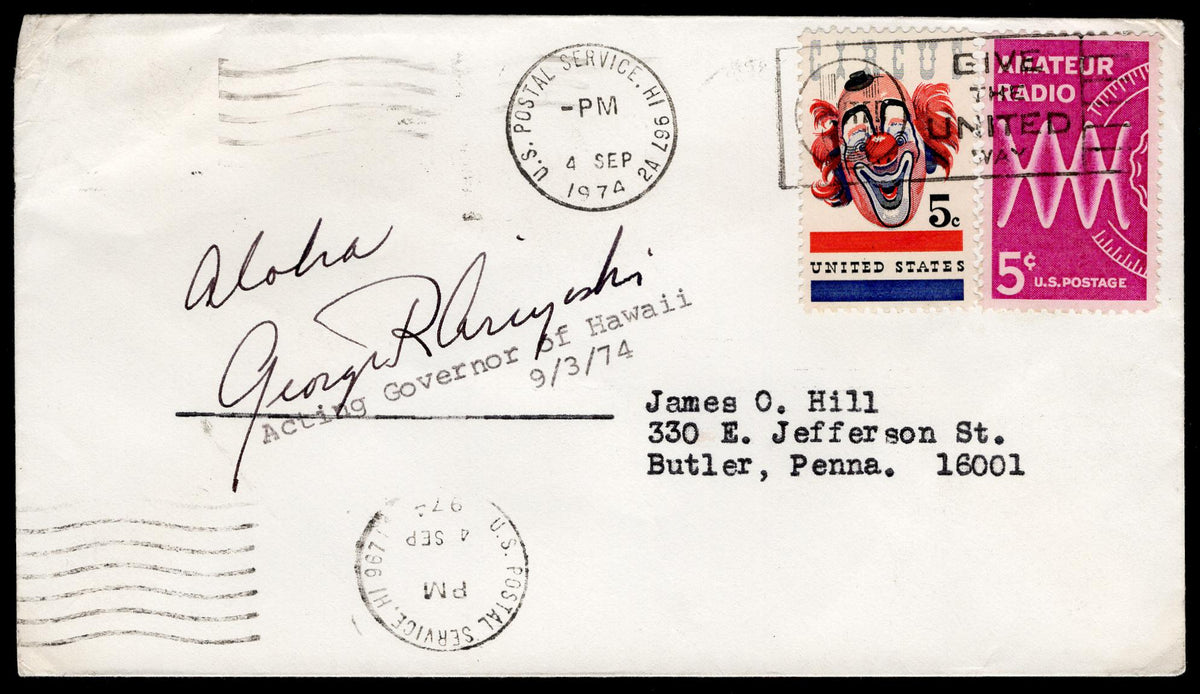 U.S. POSTAL SERVICE, HI 967 2A
-PM
4 SEP
1974
CIRCUS
5c
UNITED STATES
AMATEUR
RADIO
5¢
U.S. POSTAGE
GIVE
THE
UNITED
WAY
Aloha
George R Ariyoshi
Acting Governor of Hawaii
9/3/74
James O. Hill
330 E. Jefferson St.
Butler, Penna. 16001
U.S. POSTAL SERVICE, HI 967
PM
4 SEP
197